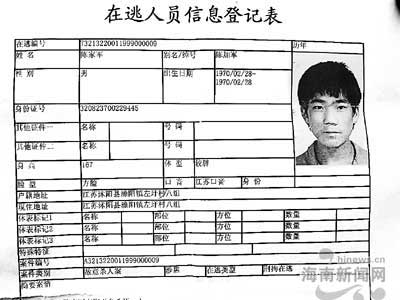 在逃人员信息登记表
在逃编号 T3213220011999000009 历年
姓名 陈家军 别名/绰号 陈加军
性别 男 出生日期 1970/02/28-
1970/02/28
身份证号 320823700229445
其他证件一 名称 号码
其他证件二 名称 号码
身高 167 体型 较胖
脸型 方脸 口音 江苏口音 身份
户籍地址 江苏沭阳县 镇左圩村八组
现住地址 江苏沭阳县 镇左圩村八组
体表标记1 名称 部位 方位 数量
体表标记2 名称 部位 方位 数量
体表标记3 名称 部位 方位 数量
特殊特征
案件编号 A3213220011999000009
案件类别 故意杀人案 涉黑 在逃类型 刑拘在逃
hinews.cn
海南新闻网